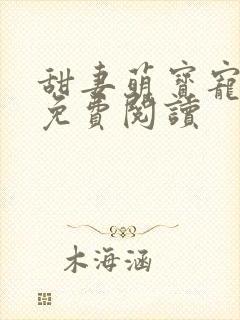 甜妻萌寶寵
免費閱讀
木海涵